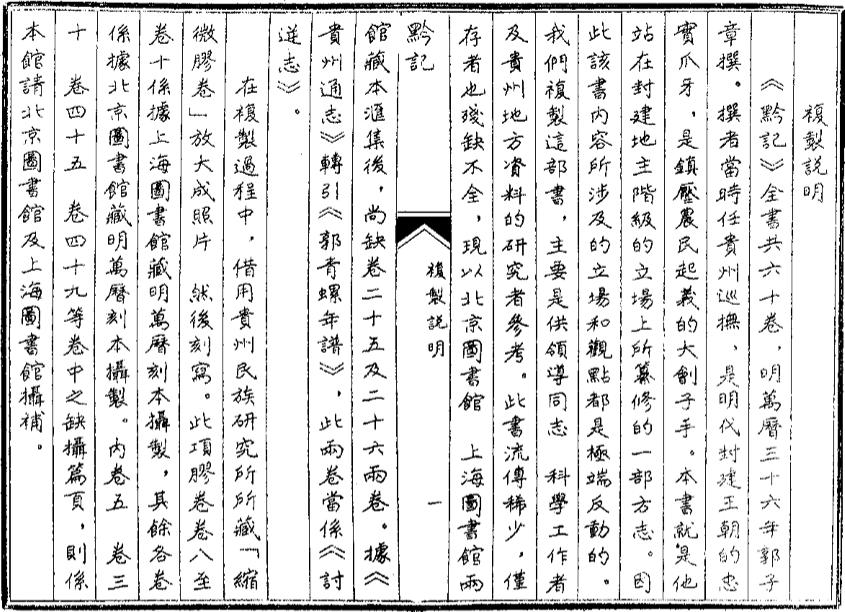 複製説明
《黔記》全書共六十卷，明萬曆三十六年郭子
章撰。撰者當時任貴州巡撫，是明代封建王朝的忠
實爪牙，是鎮壓農民起義的大劊子手。本書就是他
站在封建地主階級的立場上所纂修的一部方志。因
此該書内容所涉及的立場和觀點都是極端反動的。
我們複製這部書，主要是供領導同志　科學工作者
及貴州地方資料的研究者參考。此書流傳稀少，僅
存者也殘缺不全，現以北京圖書館　上海圖書館兩
黔記
複製説明
一
館藏本滙集後，尚缺卷二十五及二十六兩卷。據《
貴州通志》轉引《郭青螺年譜》，此兩卷當係《討
逆志》。
在複製過程中，借用貴州民族研究所所藏「縮
微膠卷」放大成照片　然後刻寫。此項膠卷卷八至
卷十係據上海圖書館藏明萬曆刻本攝製，其餘各卷
係據北京圖書館藏明萬曆刻本攝製。内卷五　卷三
十　卷四十五　卷四十九等卷中之缺攝篇頁，則係
本館請北京圖書館及上海圖書館攝補。